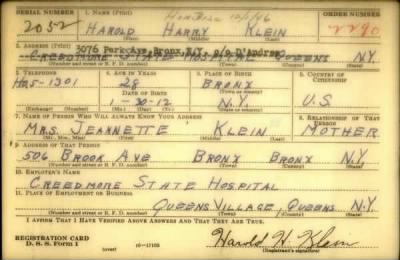 SERIAL NUMBER 1. NAME (Print) ORDER NUMBER
2052 HAROLD HARRY KLEIN 2290
(First) (Middle) (Last)
2. ADDRESS (Print) 3076 Park Ave, Bronx, N.Y. c/o D'Andrea
CREEDMORE STATE HOSPITAL QUEENS N.Y.
(Number and street or R. F. D. number) (Town) (County) (State)
3. TELEPHONE 4. AGE IN YEARS 5. PLACE OF BIRTH 6. COUNTRY OF CITIZENSHIP
HO5-1301 28 BRONX
DATE OF BIRTH (Town or county)
1-30-12 N.Y. U.S.
(Exchange) (Number) (Mo.) (Day) (Yr.) (State or country)
7. NAME OF PERSON WHO WILL ALWAYS KNOW YOUR ADDRESS 8. RELATIONSHIP OF THAT PERSON
MRS. JEANNETTE KLEIN MOTHER
(Mr., Mrs., Miss) (First) (Middle) (Last)
9. ADDRESS OF THAT PERSON
506 BROOK AVE BRONX BRONX N.Y.
(Number and street or R. F. D. number) (Town) (County) (State)
10. EMPLOYER'S NAME
CREEDMORE STATE HOSPITAL
11. PLACE OF EMPLOYMENT OR BUSINESS
QUEENS VILLAGE, QUEENS N.Y.
(Number and street or R. F. D. number) (Town) (County) (State)
I AFFIRM THAT I HAVE VERIFIED ABOVE ANSWERS AND THAT THEY ARE TRUE.
REGISTRATION CARD
D. S. S. Form 1 (over) 16-17105 Harold H. Klein
(Registrant's signature)